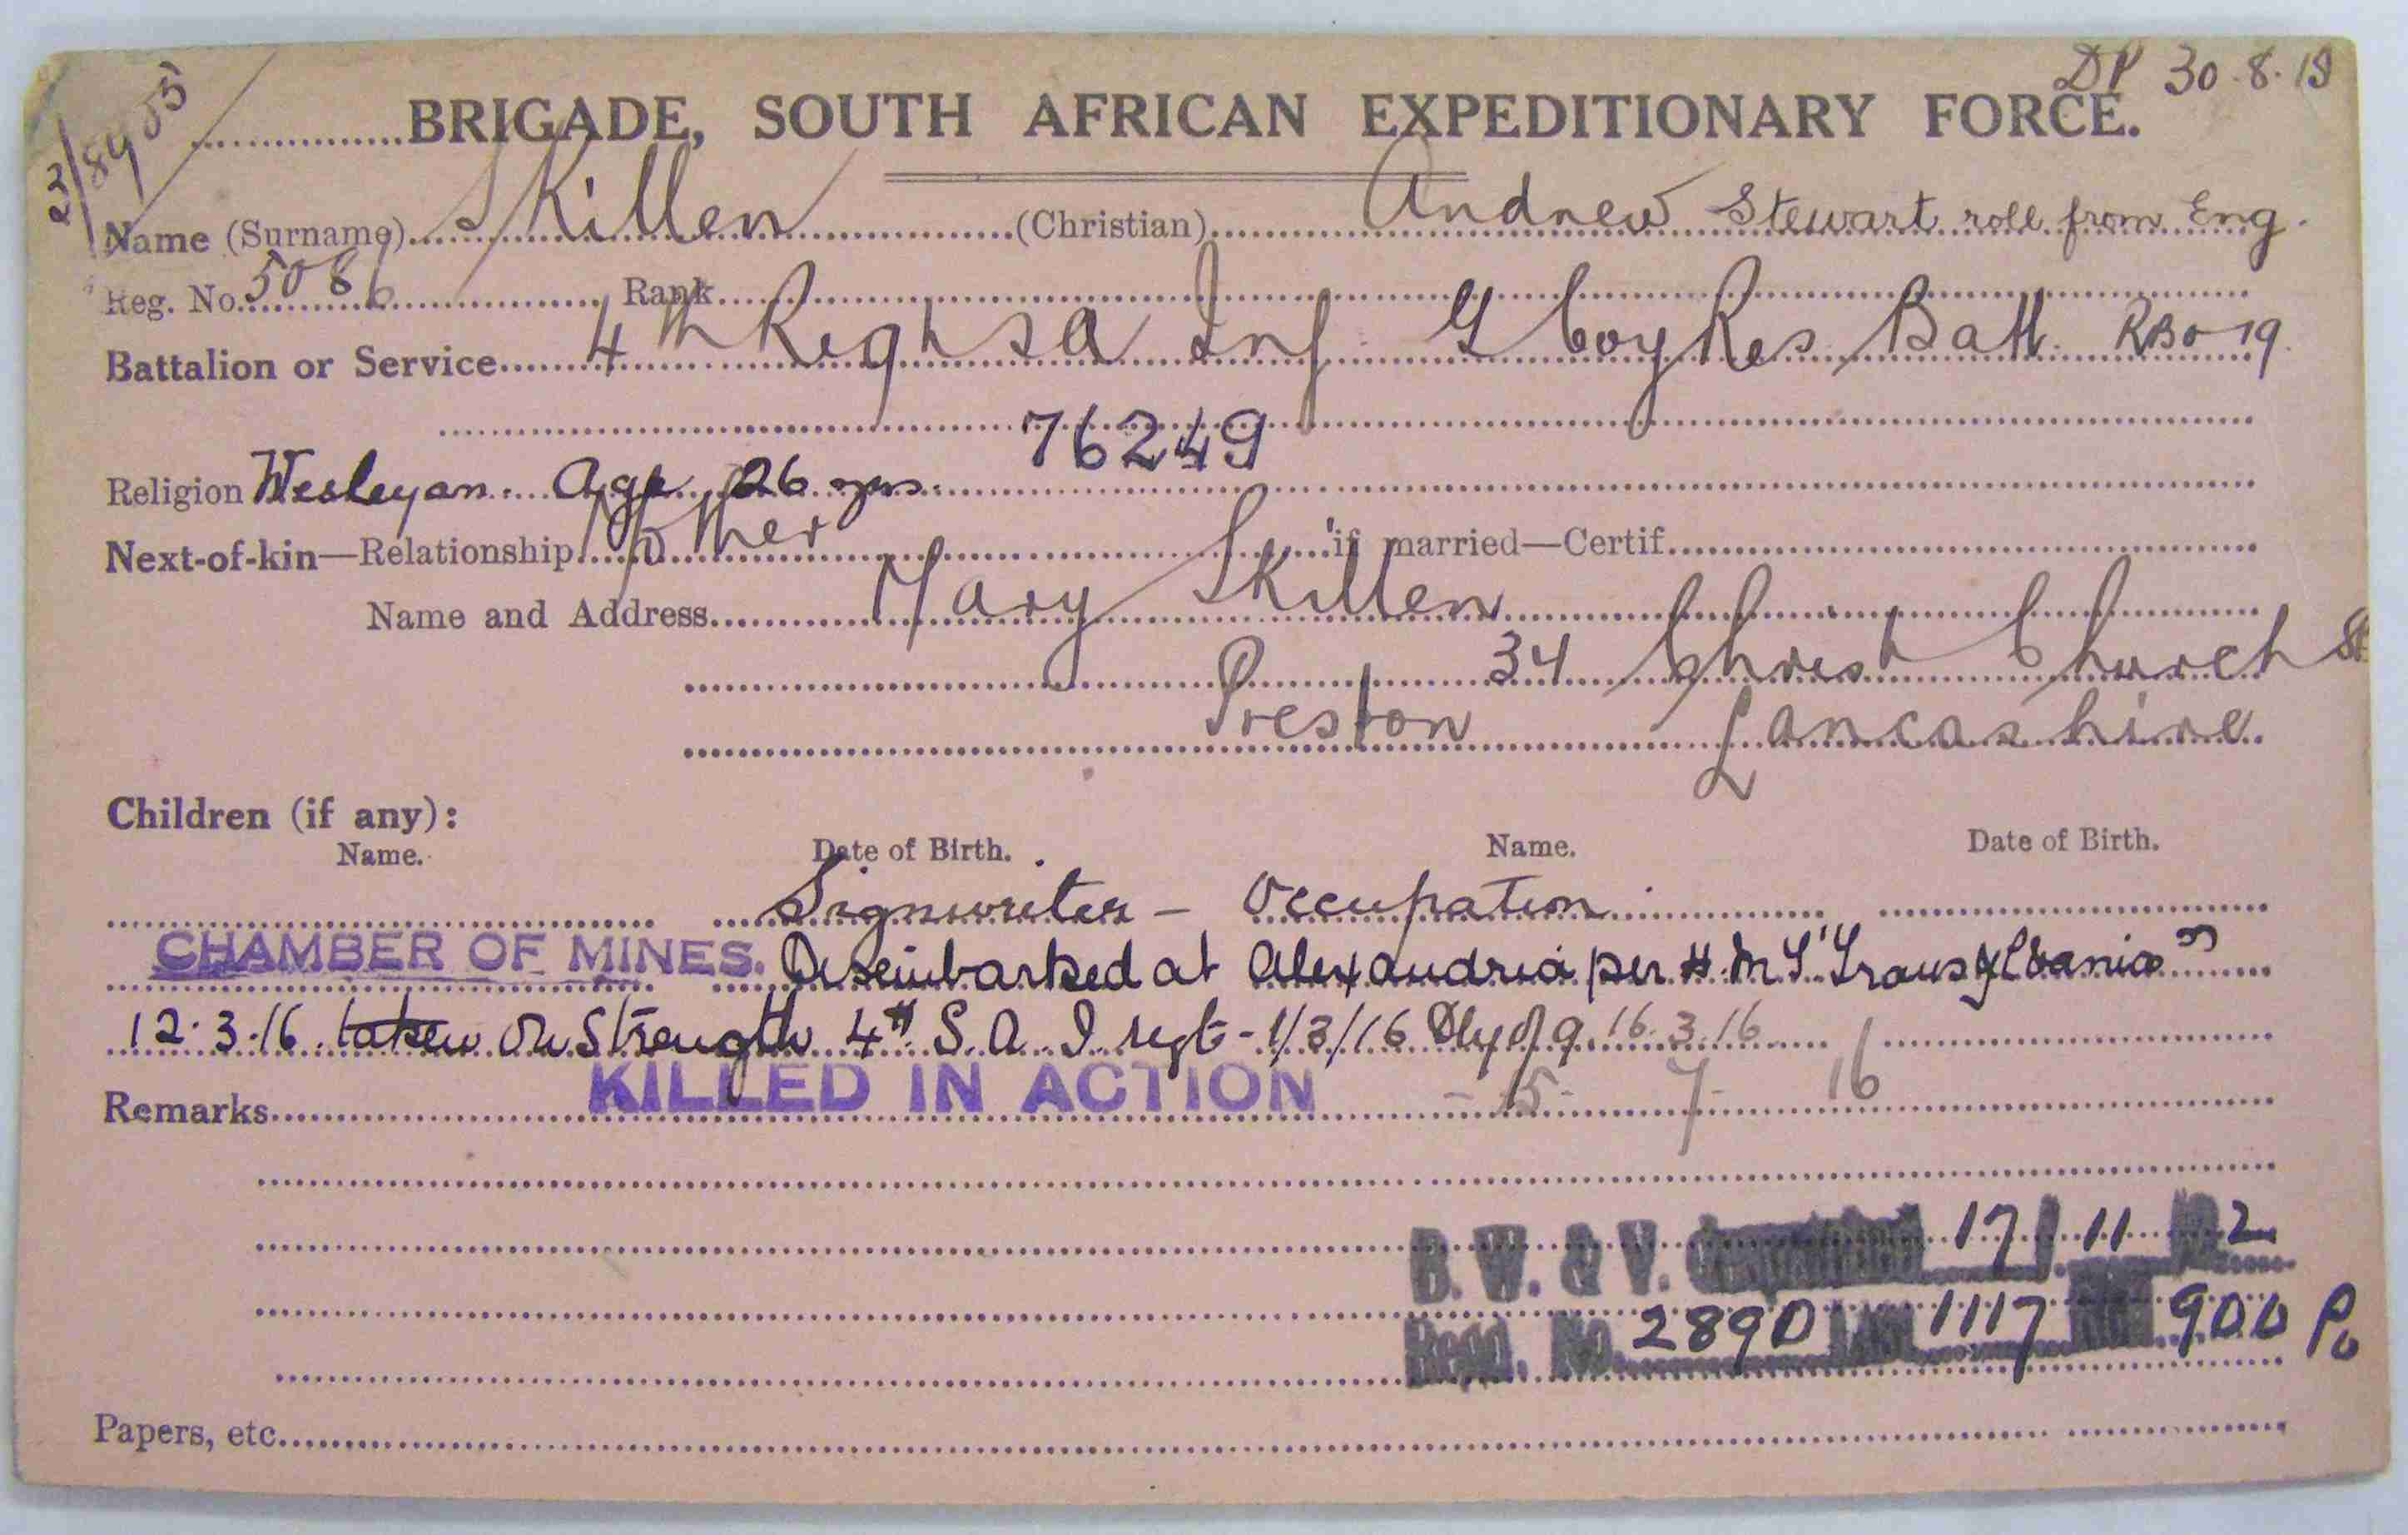 DP 30.8.19
3/8955
BRIGADE, SOUTH AFRICAN EXPEDITIONARY FORCE.
Name (Surname) Skillen (Christian) Andrew Stewart roll from Eng.
Reg. No. 5086 Rank
Battalion or Service 4th Regt S A Inf G Coy Res Batt. RBO 19.
76249
Religion Wesleyan. Age 26 yrs.
Next-of-kin—Relationship Mother if married—Certif.
Name and Address Mary Skillen
34 Christ Church St
Preston Lancashire.
Children (if any):
Name. Date of Birth. Name. Date of Birth.
Signwriter - Occupation
CHAMBER OF MINES. Disembarked at Alexandria per H.M.S. "Transylvania"
12.3.16 taken on Strength 4th S.A.I regt - 1/3/16 16.3.16
Remarks KILLED IN ACTION - 15 - 7 - 16
B. W. & V. 17 11 2
Regd. No. 2890 1117 900 Po
Papers, etc.